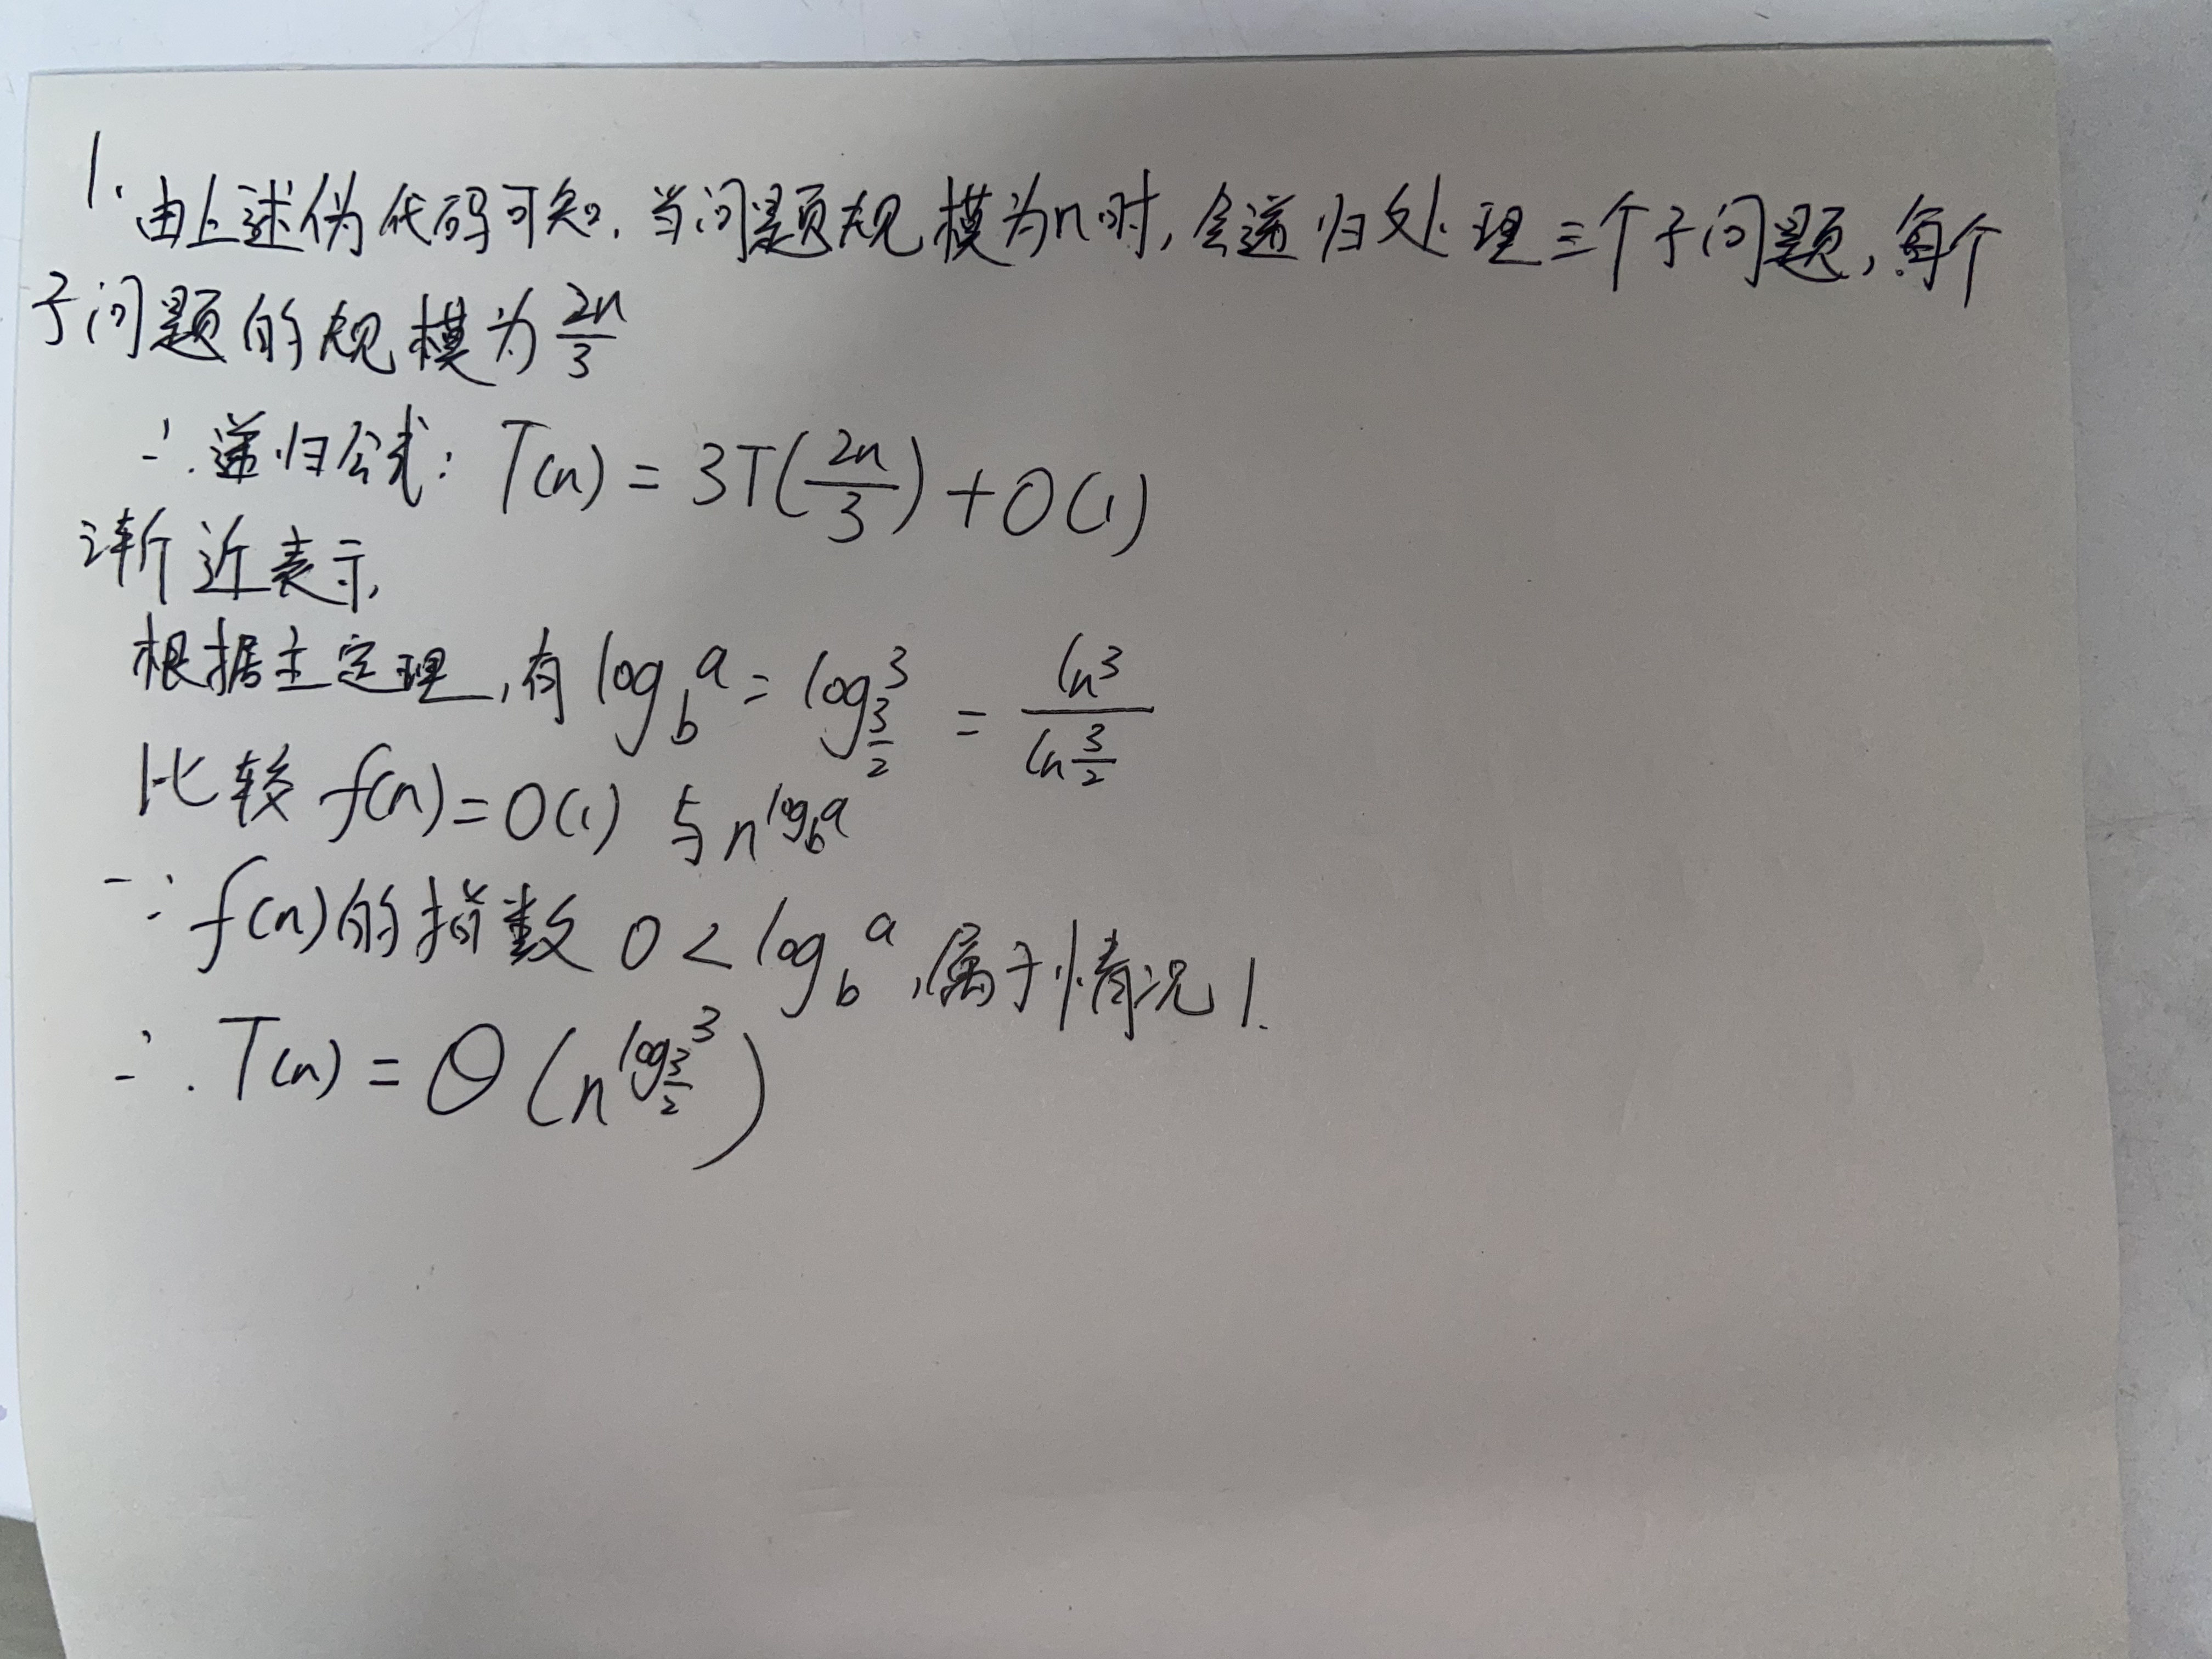 1. 由上述伪代码可知,当问题规模为n时,会递归处理三个子问题,每个
子问题的规模为 2n/3
∴ 递归公式: T(n) = 3T(2n/3) + O(1)
渐近表示,
根据主定理,有 log_b a = log_{3/2} 3 = ln3 / ln 3/2
比较 f(n) = O(1) 与 n^{log_b a}
∵ f(n)的指数 0 < log_b a ,属于情况1.
∴ T(n) = Θ(n^{log_{3/2} 3})